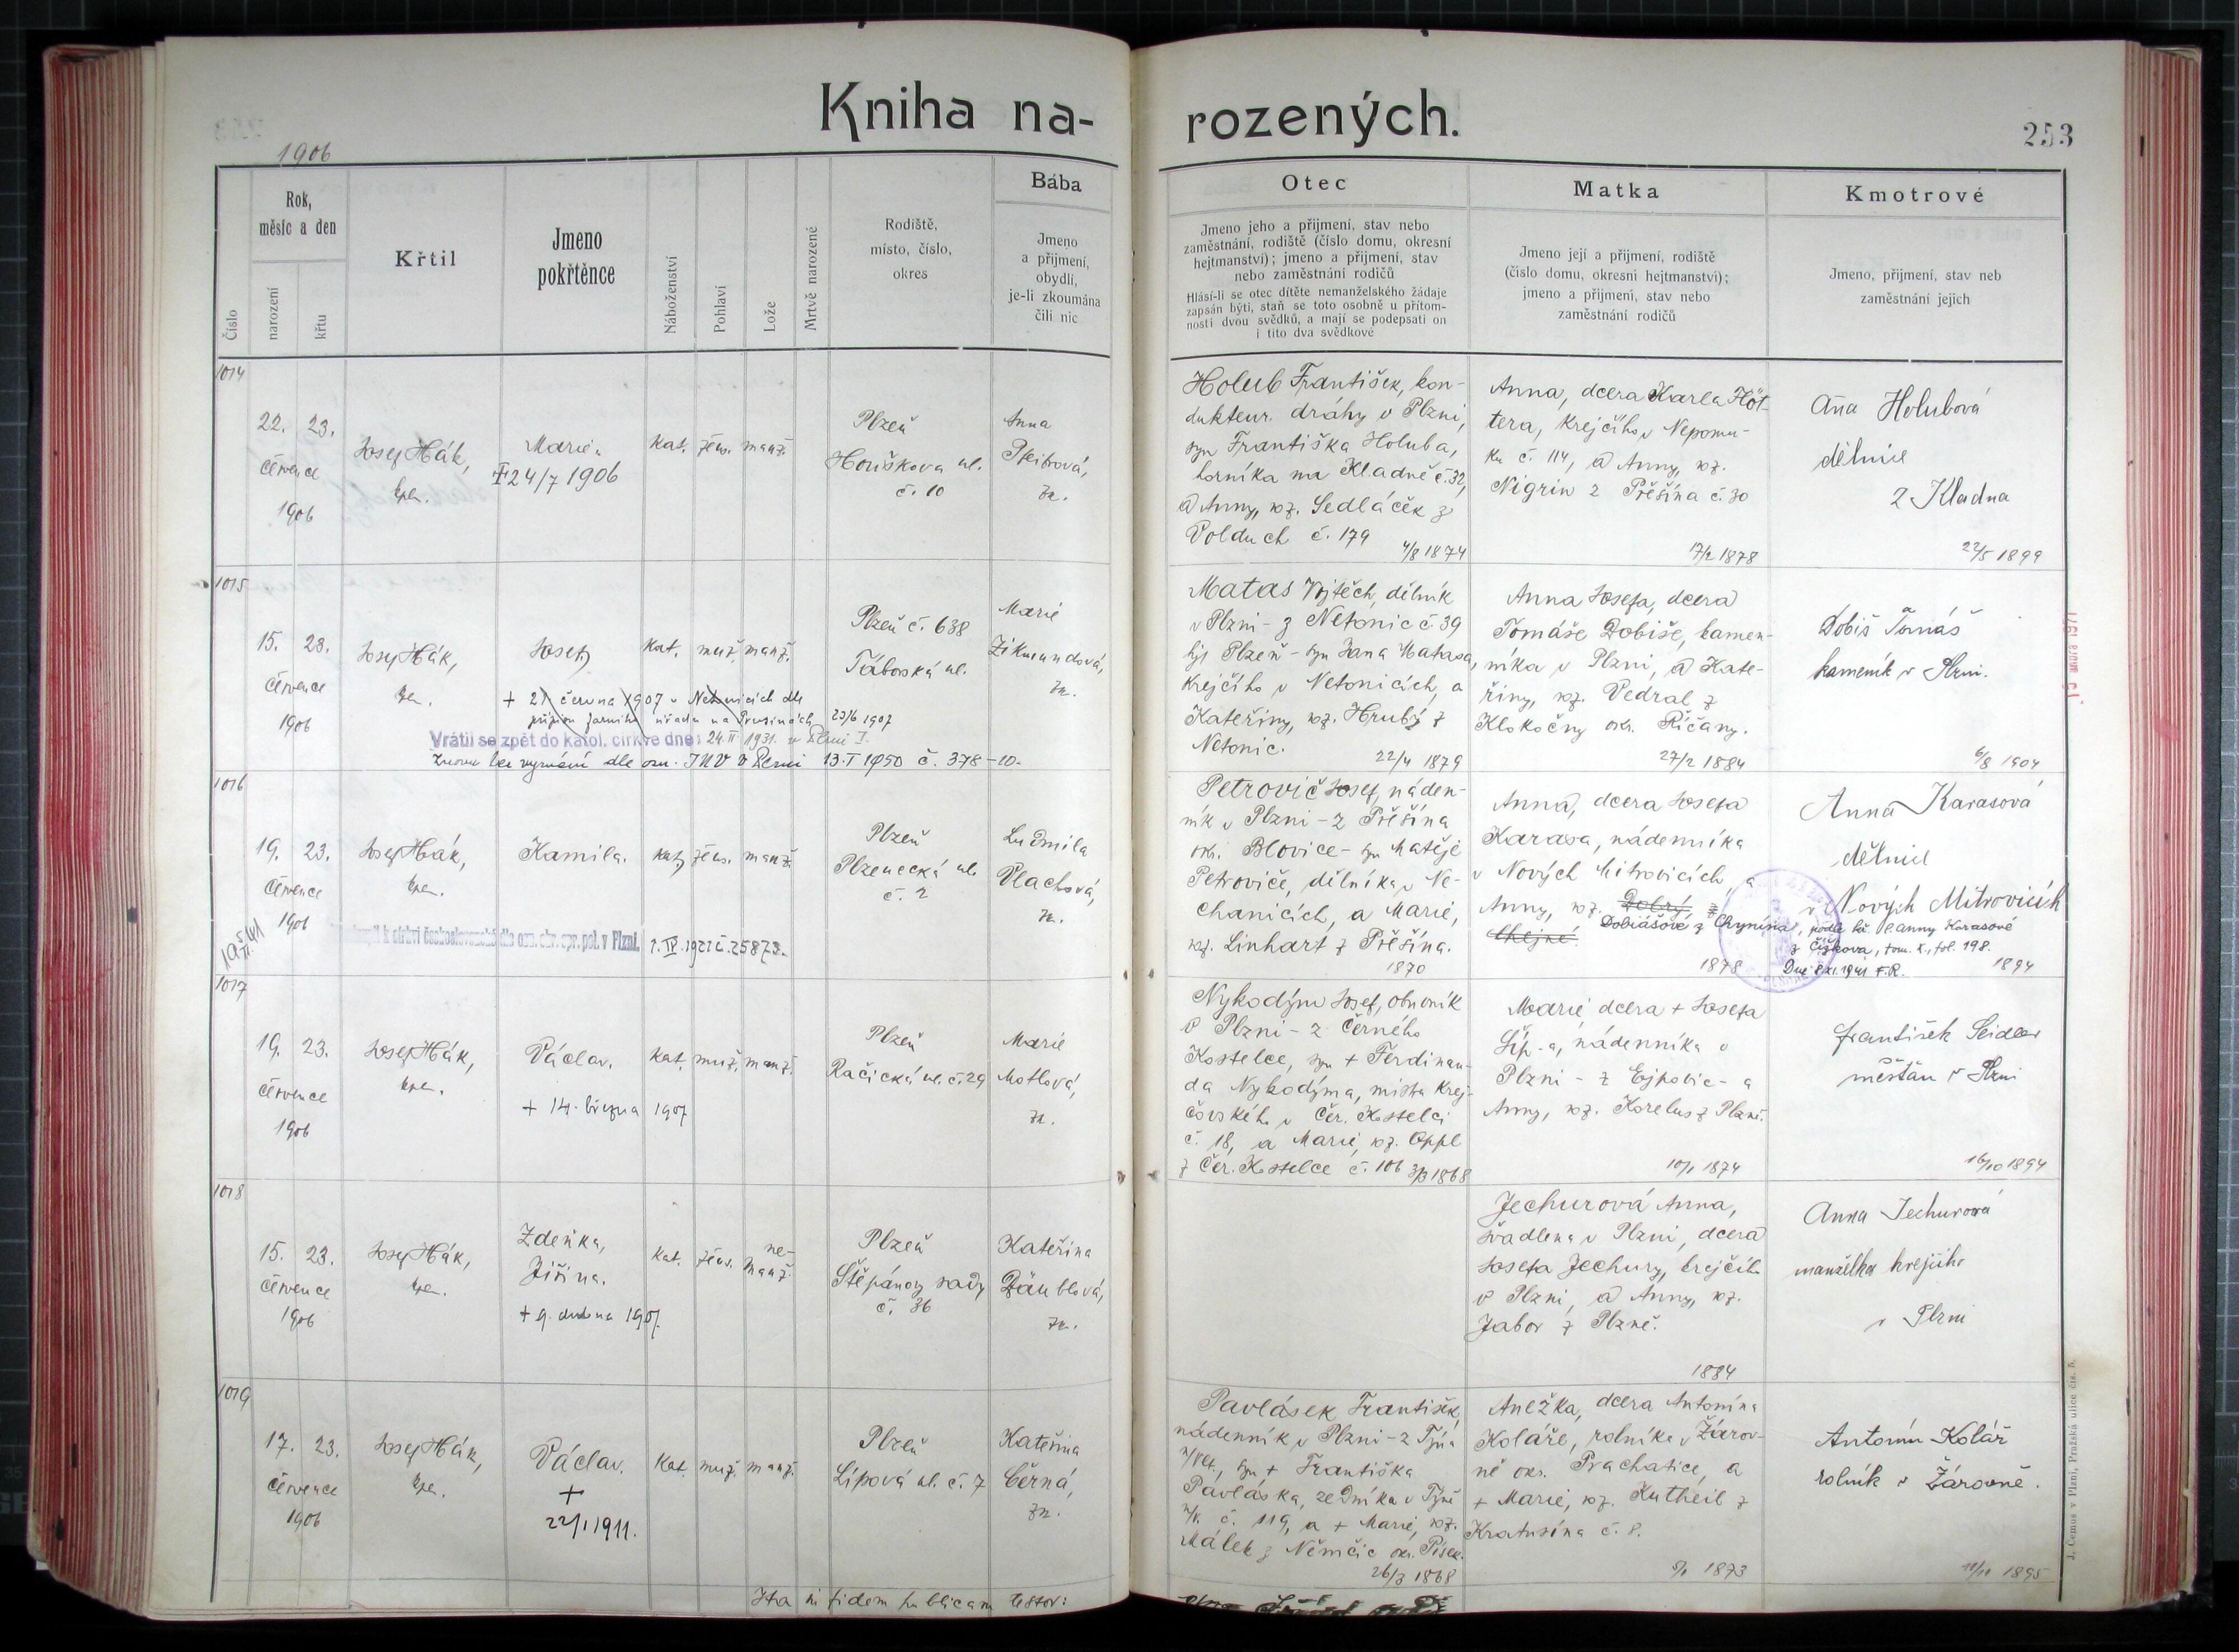 Kniha na-
rozených.
253
1906
Rok,
měsíc a den
Číslo
narození
křtu
Křtil
Jmeno
pokřtěnce
Náboženství
Pohlaví
Lože
Mrtvě narozené
Rodiště,
místo, číslo,
okres
Bába
Jmeno
a přijmení,
obydlí,
je-li zkoumána
čili nic
Otec
Jmeno jeho a přijmení, stav nebo
zaměstnání, rodiště (číslo domu, okresní
hejtmanství); jmeno a přijmení, stav
nebo zaměstnání rodičů
Hlásí-li se otec dítěte nemanželského žádaje
zapsán býti, staň se toto osobně u přítom-
nosti dvou svědků, a mají se podepsati on
i tito dva svědkové
Matka
Jmeno její a přijmení, rodiště
(číslo domu, okresní hejtmanství);
jmeno a přijmení, stav nebo
zaměstnání rodičů
Kmotrové
Jmeno, přijmení, stav neb
zaměstnání jejich
1014
22. 23.
července
1906
Josef Hák,
kpl.
Marie.
24/7 1906
Kat. žens. manž.
Plzeň
Houškova ul.
č. 10
Anna
zk.
Holub František, kon-
dukteur. dráhy v Plzni,
syn Františka Holuba,
horníka na Kladně č. 32,
a Anny, roz. Sedláček z
Volduch č. 179
4/8 1874
Anna, dcera Karla Höt-
tera, krejčího v Nepomu-
ku č. 114, a Anny, roz.
Nigrin z Přešína č. 30
17/2 1878
Ana Holubová
dělnice
z Kladna
22/5 1899
1015
15. 23.
července
1906
Josef Hák,
kpl.
Josef,
Kat. muž. manž.
+ 21 června 1907 v Netonicích dle
přípisu farního úřadu na Prusinách 23/6 1907
Vrátil se zpět do katol. církve dne: 24. II. 1931. v Plzni I.
Znovu bez vyznání dle ozn. JNV v Plzni 13.I 1950 č. 378-10-
Plzeň č. 638
Táborská ul.
Marie
Zikmundová,
zk.
Matas Vojtěch, dělník
v Plzni - z Netonic č. 39
hjt Plzeň - syn Jana Matasa,
krejčího v Netonicích, a
Kateřiny, roz. Hrubý z
Netonic.
22/4 1879
Anna Josefa, dcera
Tomáše Dobiše, kamen-
níka v Plzni, a Kate-
řiny, roz. Vedral z
Klokočny okr. Říčany.
27/2 1884
Dobiš Tomáš
kameník v Plzni.
6/8 1904
1016
19. 23.
července
1906
Josef Hák,
kpl.
Kamila.
Kat. žens. manž.
k církvi československé dle ozn. okr. spr. pol. v Plzni. 1. IV. 1921 č. 25873.
Plzeň
Plzenecká ul.
č. 2
Ludmila
Vlachová,
zk.
Petrovič Josef, náden-
ník v Plzni - z Přešína
okr. Blovice - syn Matěje
Petroviče, dělníka v Ne-
chanicích, a Marie,
roz. Linhart z Přešína.
1870
Anna, dcera Josefa
Karasa, nádenníka
v Nových Mitrovicích, a
Anny, roz. Dobrý z
Chejné.
Dobiášové z Chynína, podle kř. l. Anny Karasové
z Čížkova, tom. X., fol. 198.
Dne 8.XI.1941 F.R.
1878
Anna Karasová
dělnice
v Nových Mitrovicích
1894
1017
19. 23.
července
1906
Josef Hák,
kpl.
Václav.
+ 14. března 1907
Kat. muž. manž.
Plzeň
Račická ul. č. 29
Marie
Motlová,
zk.
Nykodým Josef, obuvník
v Plzni - z Černého
Kostelce, syn + Ferdinan-
da Nykodýma, mistra krej-
čovského v Čer. Kostelci
č. 18, a Marie, roz. Oppl
z Čer. Kostelce č. 106 3/3 1868
Marie dcera + Josefa
Šíp-a, nádenníka v
Plzni - z Ejpovic - a
Anny, roz. Korelus z Plzně.
10/1 1874
František Seidler
měšťan v Plzni
16/10 1894
1018
15. 23.
července
1906
Josef Hák,
kpl.
Zdeňka,
Jiřina.
+ 9. dubna 1907.
Kat. žens. ne-
manž.
Plzeň
Štěpánovy sady
č. 36
Kateřina
Däublová,
zk.
Jechurová Anna,
švadlena v Plzni, dcera
Josefa Jechury, krejčího
v Plzni, a Anny, roz.
Jabor z Plzně.
1884
Anna Jechurová
manželka krejčího
v Plzni
1019
17. 23.
července
1906
Josef Hák,
kpl.
Václav.
+
22/1 1911.
Kat. muž. manž.
Plzeň
Lípová ul. č. 7
Kateřina
Černá,
zk.
Pavlásek František,
nádenník v Plzni - z Týna
n/Vlt., syn + Františka
Pavláska, zedníka v Týně
n/V. č. 119, a + Marie, roz.
Málek z Němčic okr. Písek.
26/3 1868
Anežka, dcera Antonína
Koláře, rolníka v Žárov-
ně okr. Prachatice, a
+ Marie, roz. Kutheil z
Kratusína č. 8.
5/1 1873
Antonín Kolář
rolník v Žárovně.
11/11 1895
Ita in fidem publicam testor:
J. Čemus v Plzni, Pražská ulice čís. 5.